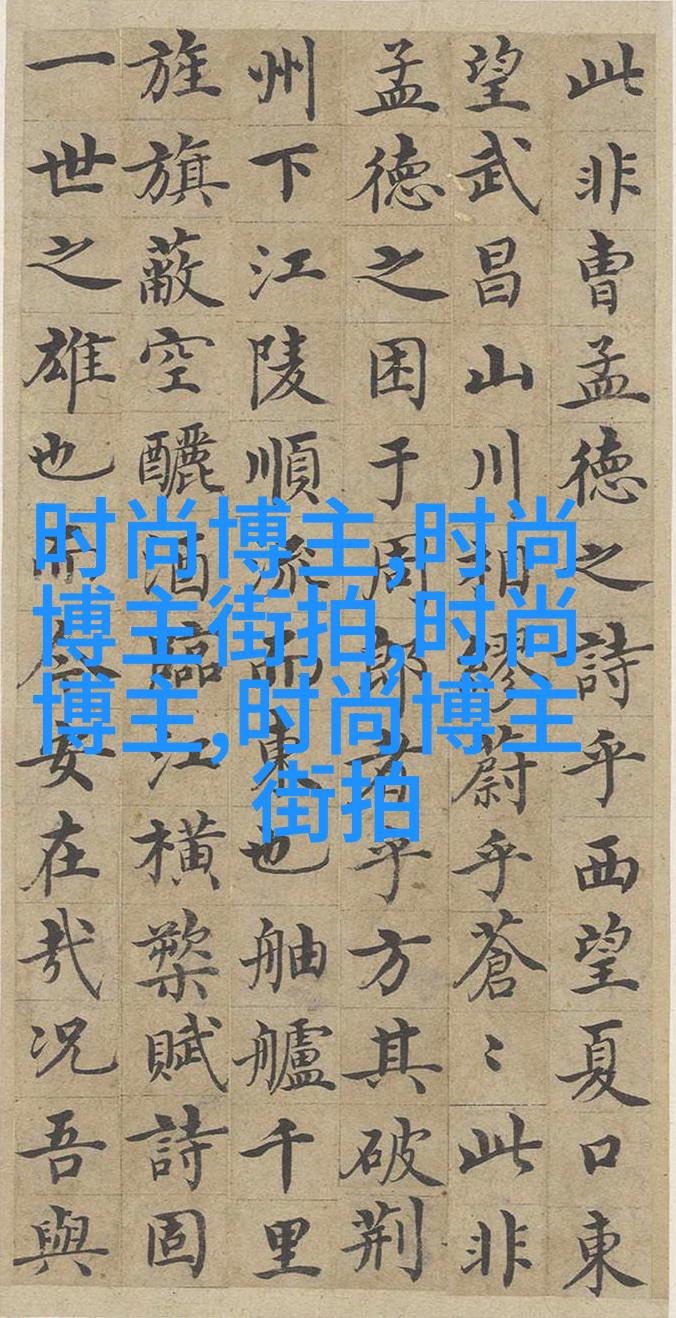 此非曹孟德之詩乎西望夏口東
望武昌山川相繆蔚乎蒼〻此非
孟德之困于周郎者乎方其破荆
州下江陵順流而東也舳艫千里
旌旗蔽空釃酒臨江横槊賦詩固
一世之雄也而今安在哉况吾與
时尚博主,时尚
博主街拍,时尚
博主,时尚博主
街拍